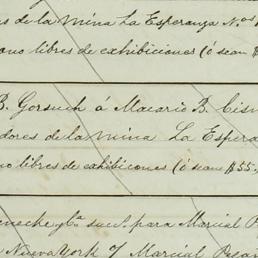 s de la mina La Esperanza Nos
ano libres de exhibiciones (ó sean $
B. Gorsuch á Macario B. Cisn
dores de la mina La Espera
no libres de exhibiciones (ó sean $55.
eneche y Ca. suc. para Marcial P
Nueva York y Marcial